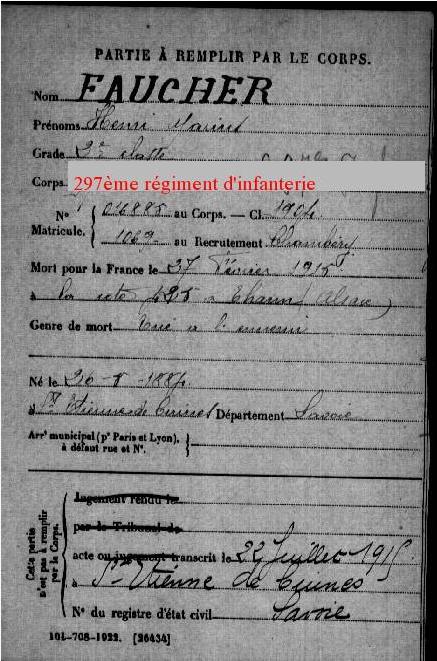 PARTIE À REMPLIR PAR LE CORPS.
Nom FAUCHER
Prénoms Henri
Grade 2e classe
Corps 297ème régiment d'infanterie
N° Matricule. { 016885 au Corps. — Cl. 1904
1069 au Recrutement Chambéry
Mort pour la France le 27 Février 1915
à la cote 425 à Thann (Alsace)
Genre de mort Tué à l'ennemi
Né le 26-8-1884
à St Etienne de Cuines Département Savoie
Arrt municipal (pr Paris et Lyon), à défaut rue et N°. {
Cette partie n'est pas à remplir par le Corps. {
Jugement rendu le
par le Tribunal de
acte ou jugement transcrit le 22 Juillet 1915
à St Etienne de Cuines
N° du registre d'état civil Savoie
101-708-1922. [26434]